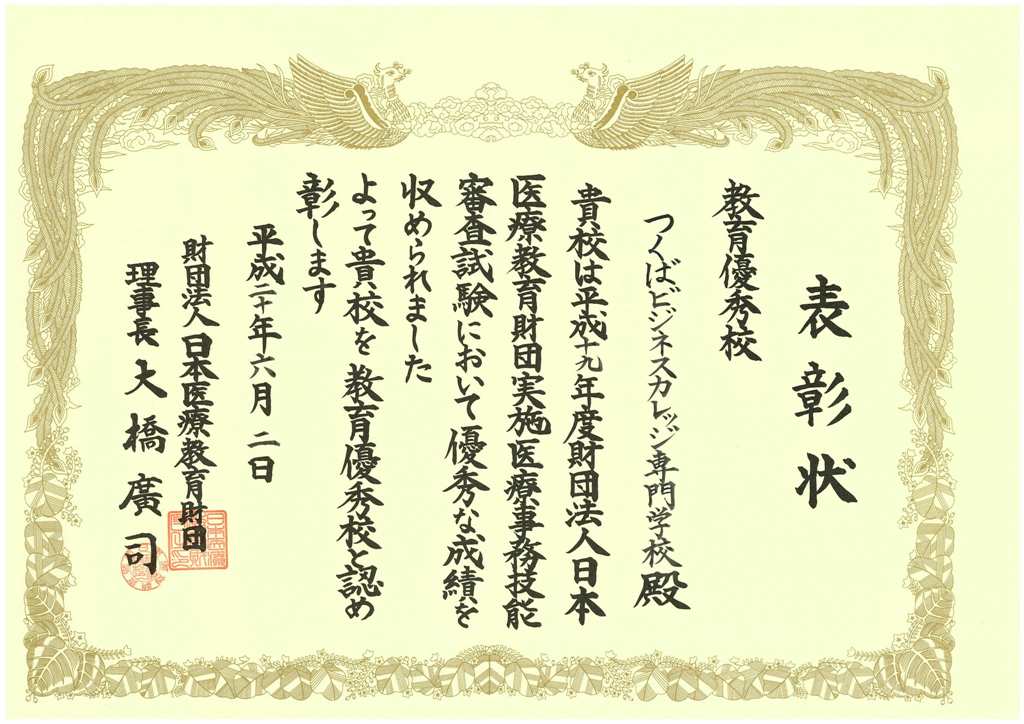 表彰状
教育優秀校
つくばビジネスカレッジ専門学校殿
貴校は平成十九年度財団法人日本
医療教育財団実施医療事務技能
審査試験において優秀な成績を
収められました
よって貴校を教育優秀校と認め
彰します
平成二十年六月二日
財団法人日本医療教育財団
理事長大橋廣司